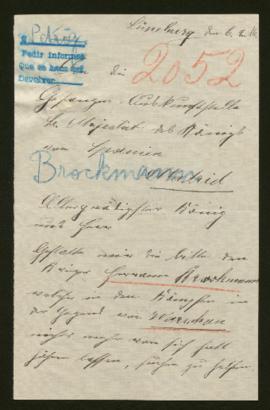 Lüneburg den 6.2.16
Pedir informes
Que se hace así.
Devolver.
die 2052
Gefangenen Auskunftstelle
Sr. Majestät des Königs
von Spanien
Brockmann
Madrid
Allergnädigster König
und Herr
Gestatte mir die bitte den
Krieger Hermann Brockmann
welcher in den Kämpfen in
der Gegend von Warschau
nichts mehr von sich hat
hören lassen, suchen zu helfen